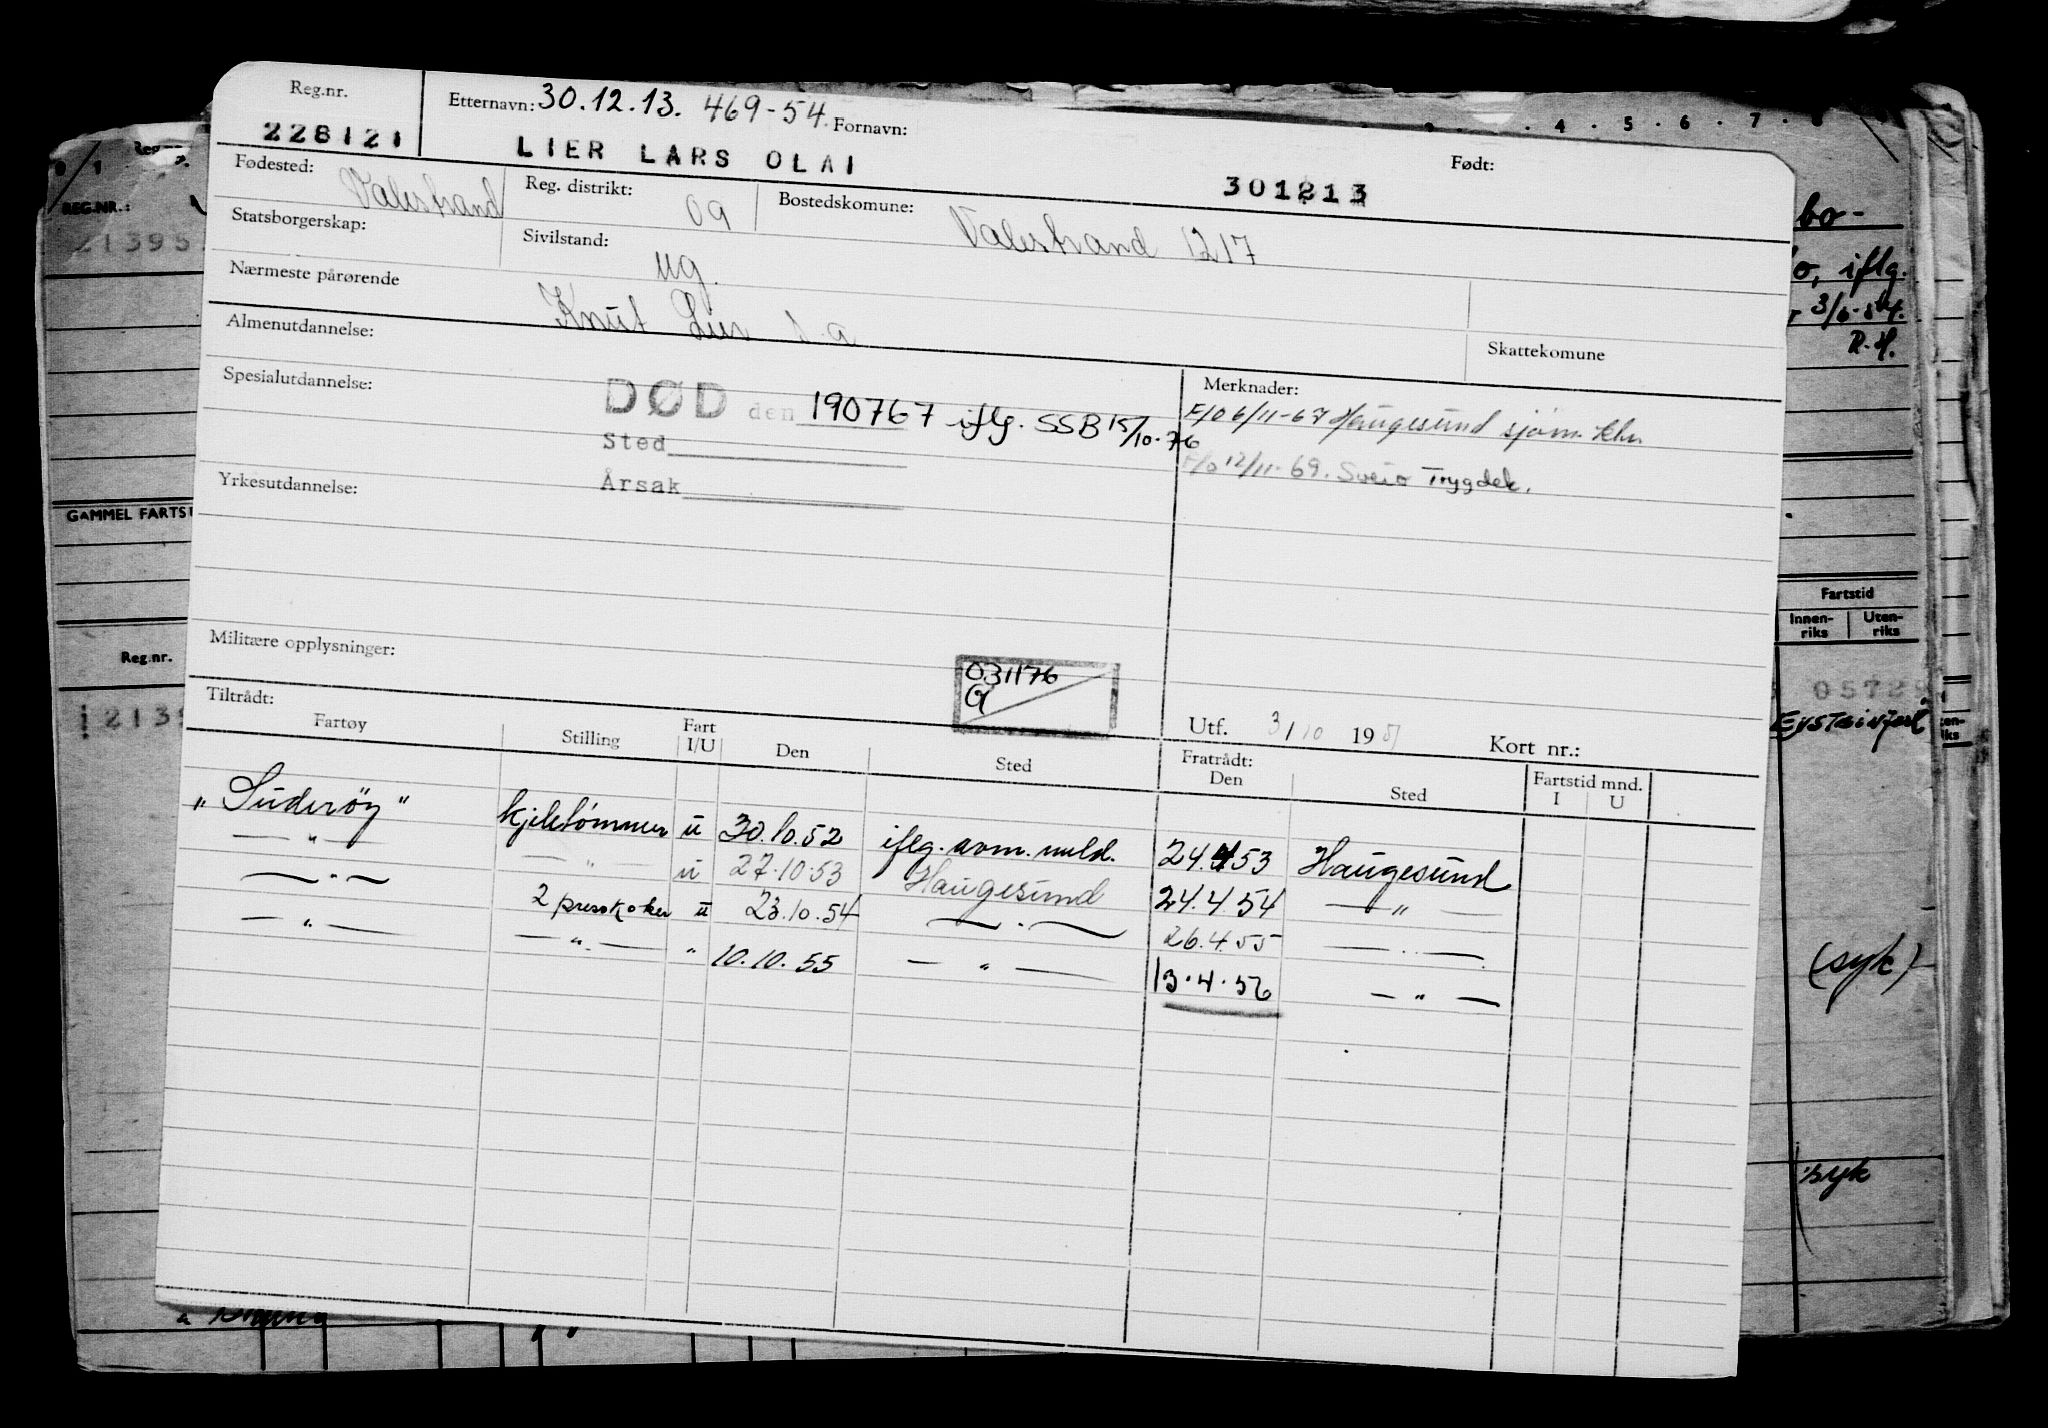 Reg.nr.
228121
Etternavn: 30.12.13. 469-54. Fornavn:
LIER LARS OLAI
Født:
301213
Fødested: Valestrand
Reg. distrikt: 09
Bostedskomune: Valestrand 1217
Statsborgerskap:
Sivilstand: ug.
Nærmeste pårørende Knut
Skattekomune
Almenutdannelse:
Spesialutdannelse:
DØD den 190767 iflg. SSB 15/10-76
Sted
Årsak
Merknader:
F/O 6/11-67 Haugesund sjøm.
F/O 12/11-69. Sveio Trygdek.
Yrkesutdannelse:
Militære opplysninger:
031176
G
Utf. 3/10 195
Kort nr.:
Tiltrådt:
Fartøy Stilling Fart I/U Den Sted Fratrådt: Den Sted Fartstid mnd. I U
"Suderöy" kjeletømmer u 30.10.52 iflg. avm. meld. 24.4.53 Haugesund
—"— —"— u 27.10.53 Haugesund 24.4.54 —"—
—"— 2 presskoker u 23.10.54 —"— 26.4.55 —"—
—"— —"— " 10.10.55 —"— 13.4.56 —"—
REG.NR.:
GAMMEL FARTS
Reg.nr.
4 . 5 . 6 . 7 .
bo-
iflg.
R.H.
Fartstid
Innen-riks Uten-riks
0572
(syk)
syk